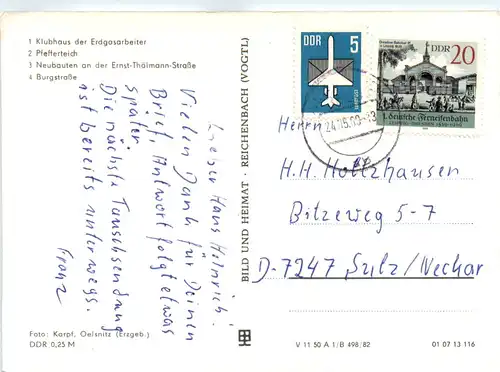 1 Klubhaus der Erdgasarbeiter
2 Pfefferteich
3 Neubauten an der Ernst-Thälmann-Straße
4 Burgstraße
Lieber Hans Heinrich!
Vielen Dank für Deinen
Brief, Antwort folgt etwas
später.
Die nächste Tauschsendung
ist bereits unterwegs.
Franz
Foto: Karpf, Oelsnitz (Erzgeb.)
DDR 0,25 M
BILD UND HEIMAT · REICHENBACH (VOGTL)
DDR 5
DDR 20
1. deutsche Ferneisenbahn
Herrn
H. H. Holtzhausen
Bitzeweg 5-7
D-7247 Sulz/Neckar
V 11 50 A 1/B 498/82
01 07 13 116